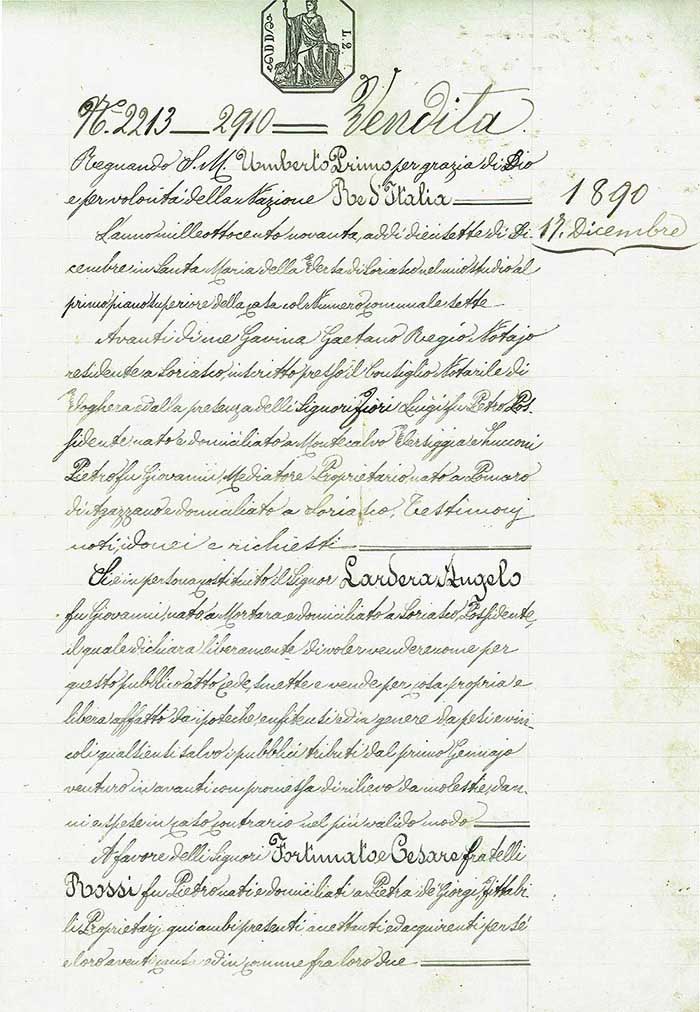 ADD
L.2.
N. 2213 — 2910 = Vendita.
Regnando S. M. Umberto Primo per grazia di Dio
e per volontà della Nazione Re d'Italia
1890
17. Dicembre
L'anno mille ottocento novanta, addì diecisette di Di
cembre in Santa Maria della Versa di Soriasco nel mio studio al
primo piano superiore della casa col Numero comunale sette
Avanti di me Gavina Gaetano Regio Notajo
residente a Soriasco, inscritto presso il Consiglio Notarile di
Voghera ed alla presenza delli Signori Fiori Luigi fu Pietro Pos-
sidente nato e domiciliato a Montecalvo Versiggia e Zucconi
Pietro fu Giovanni, Mediatore Proprietario nato a Pomaro
di Agazzano e domiciliato a Soriasco, Testimonj
noti, idonei e richiesti
Si è in persona costituito il Signor Lardera Angelo
fu Giovanni, nato a Mortara e domiciliato a Soriasco, Possidente,
il quale dichiara liberamente di voler vendere come per
questo pubblico atto cede, smette e vende per cosa propria e
libera affatto da ipoteche, enfiteusi ed in genere da pesi e vin
coli qualsiensi salvo i pubblici tributi dal primo Gennajo
venturo in avanti con promessa di rilievo da molestie, dan
ni e spese in caso contrario nel più valido modo
A favore delli Signori Fortunato e Cesare fratelli
Rossi fu Pietro nati e domiciliati a Pietra de' Giorgi, Fittabi
li Proprietarj qui ambi presenti accettanti ed acquirenti per sé
e loro aventi causa ed in comune fra loro due